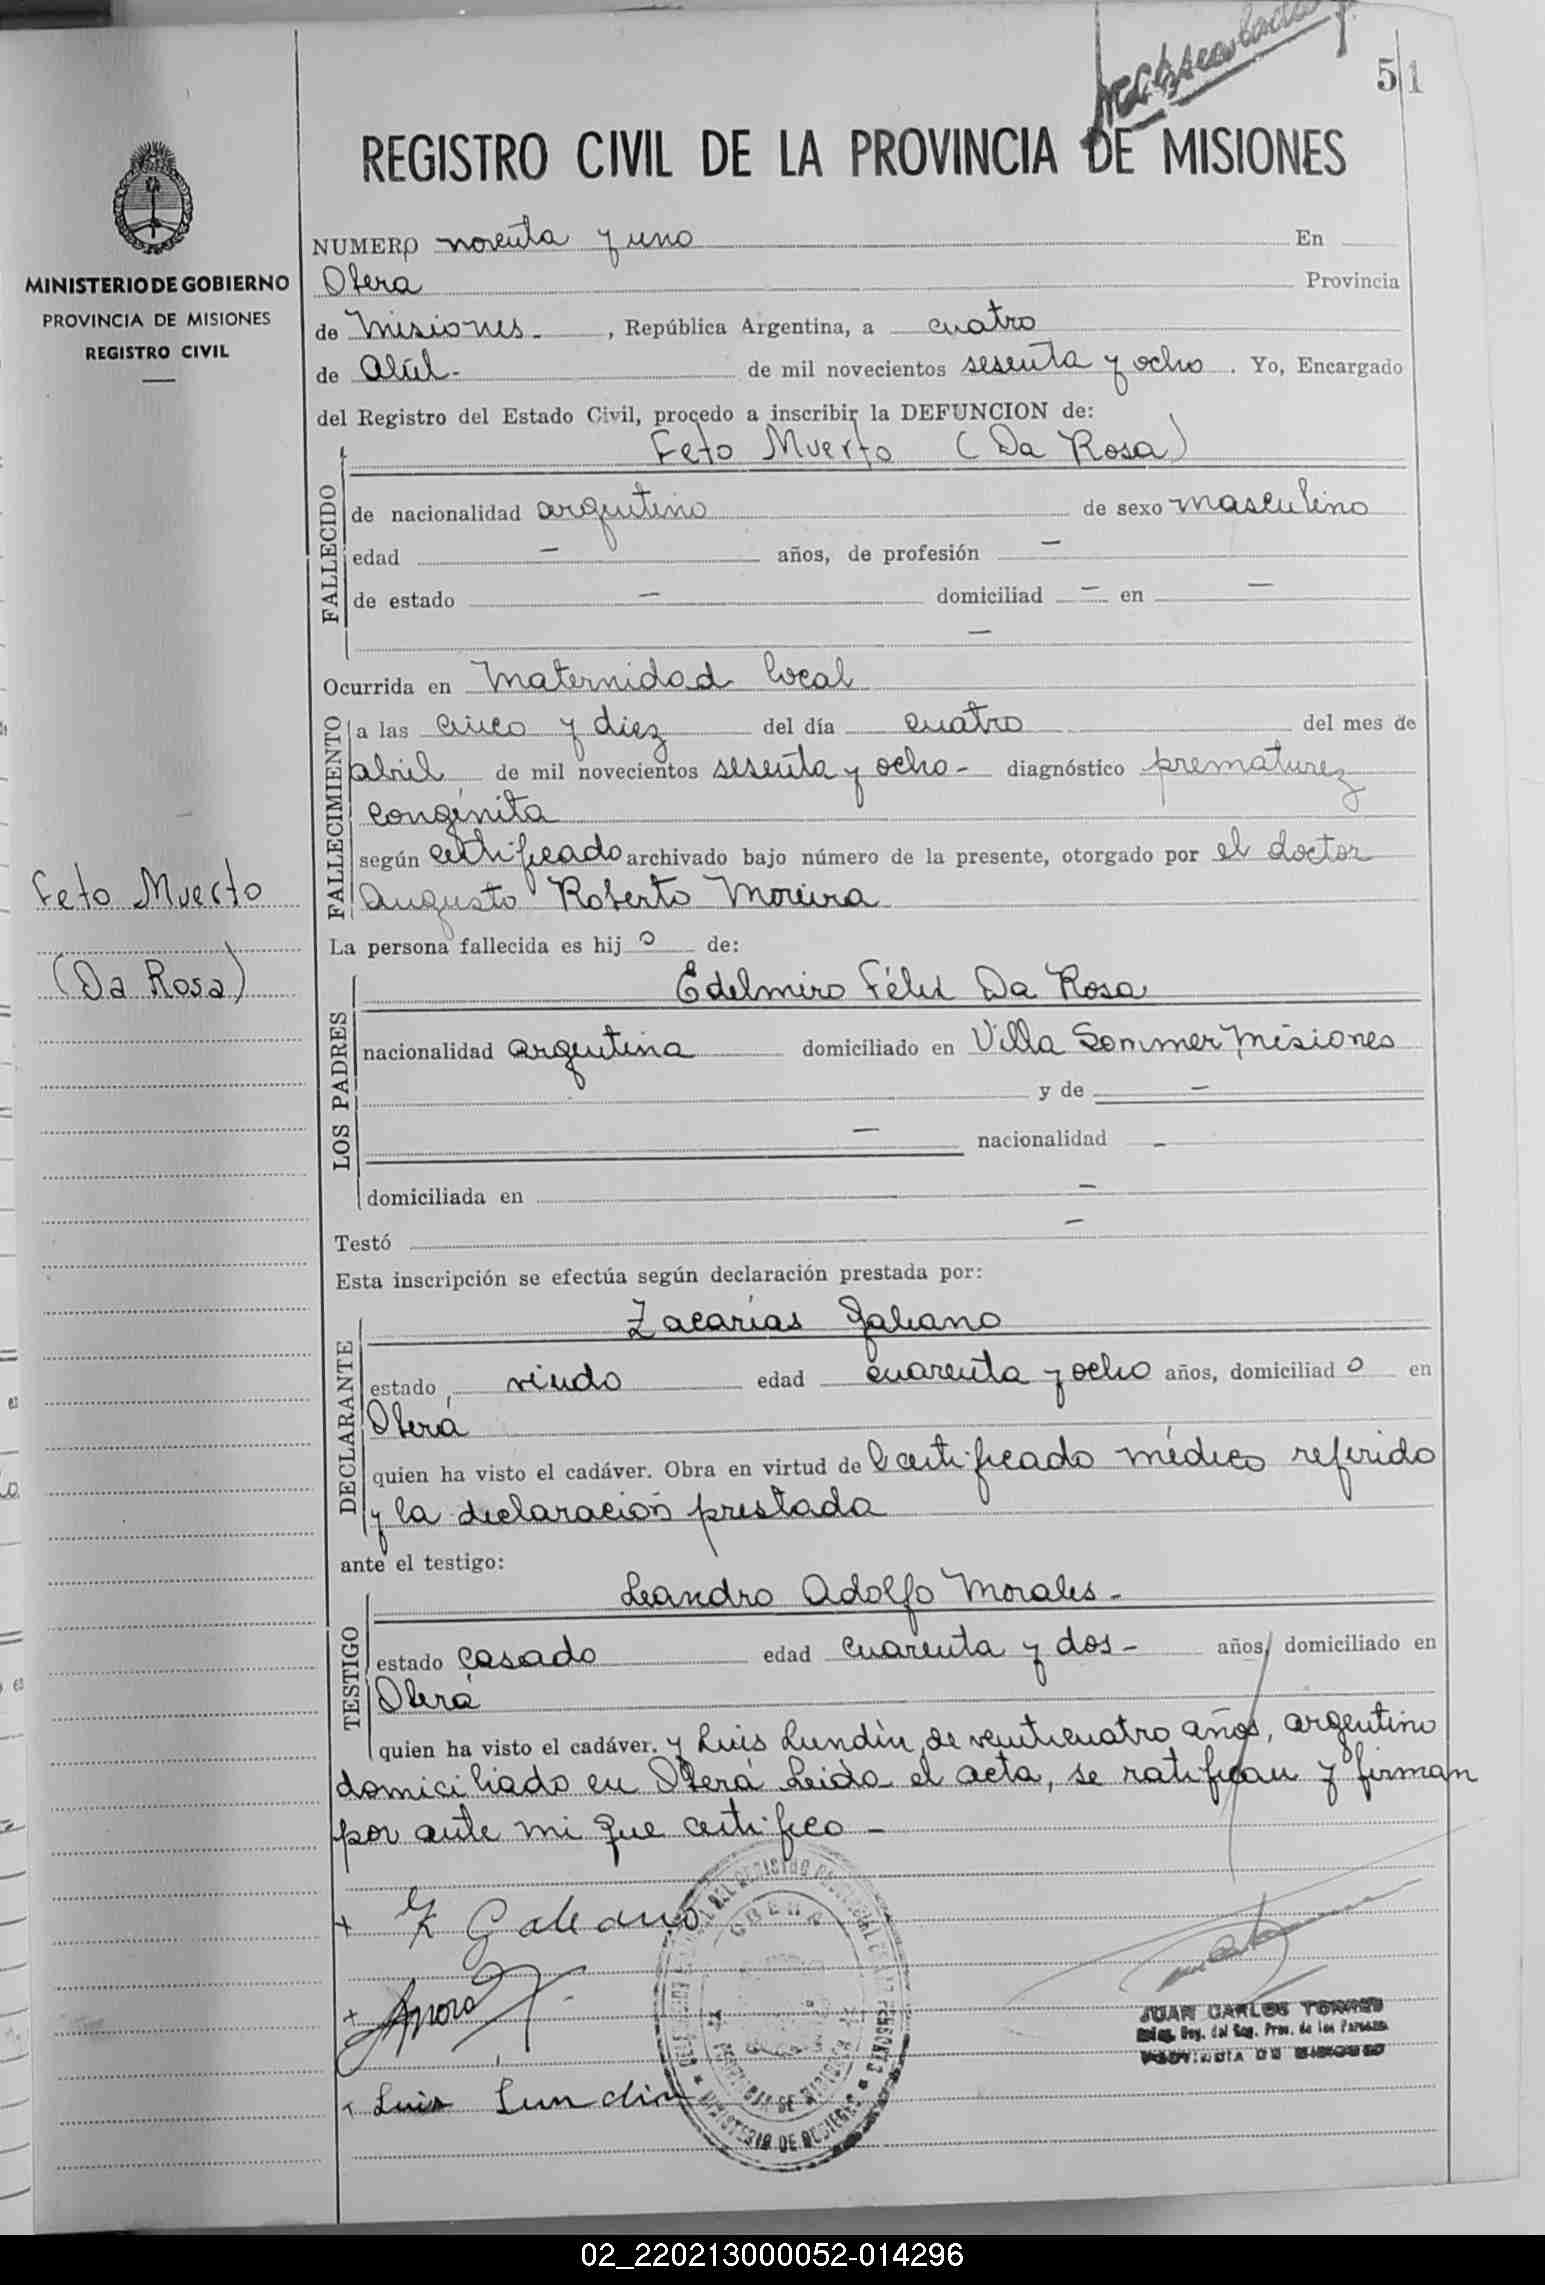 51
REGISTRO CIVIL DE LA PROVINCIA DE MISIONES
MINISTERIO DE GOBIERNO
PROVINCIA DE MISIONES
REGISTRO CIVIL
NUMERO noventa y uno En
Obera Provincia
de Misiones. , República Argentina, a cuatro
de Abril. de mil novecientos sesenta y ocho . Yo, Encargado
del Registro del Estado Civil, procedo a inscribir la DEFUNCION de:
Feto Muerto (Da Rosa)
FALLECIDO
de nacionalidad argentino de sexo masculino
edad — años, de profesión —
de estado — domiciliad — en —
—
Ocurrida en Maternidad local
FALLECIMIENTO
a las cinco y diez del día cuatro del mes de
abril de mil novecientos sesenta y ocho - diagnóstico prematurez
congénita
según certificado archivado bajo número de la presente, otorgado por el doctor
Augusto Roberto Moreira
Feto Muerto
(Da Rosa)
La persona fallecida es hij o de:
Edelmiro Félix Da Rosa
LOS PADRES
nacionalidad argentina domiciliado en Villa Sommer Misiones
y de —
— nacionalidad -
domiciliada en —
Testó —
Esta inscripción se efectúa según declaración prestada por:
Zacarías Galeano
DECLARANTE
estado viudo edad cuarenta y ocho años, domiciliad o en
Oberá
quien ha visto el cadáver. Obra en virtud de l certificado médico referido
y la declaración prestada
ante el testigo:
Leandro Adolfo Morales -
TESTIGO
estado casado edad cuarenta y dos - años, domiciliado en
Oberá
quien ha visto el cadáver. y Luis Lundin de veinticuatro años, argentino
domiciliado en Oberá Leida el acta, se ratifican y firman
por ante mi que certifico -
+ Z Galeano
+
+ Luis Lundin
OBERA
PROVINCIA DE MISIONES
MINISTERIO DE GOBIERNO
JUAN CARLOS TORRES
Prov. de las Personas
PROVINCIA DE MISIONES
02_220213000052-014296